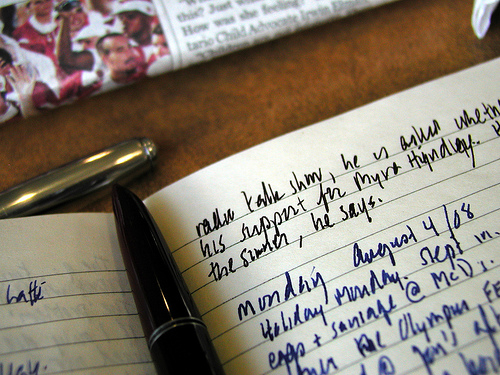 this? Just
How was she feeling?
taric Child Advocate Irwin
radio talk show, he is asked wheth
his support for Myra Hyndley.
the similar, he says.
Monday August 4/08
Holiday Monday. slept in.
eggs + sausage @ McD's.
the Olympus
@ Jen's
Latté